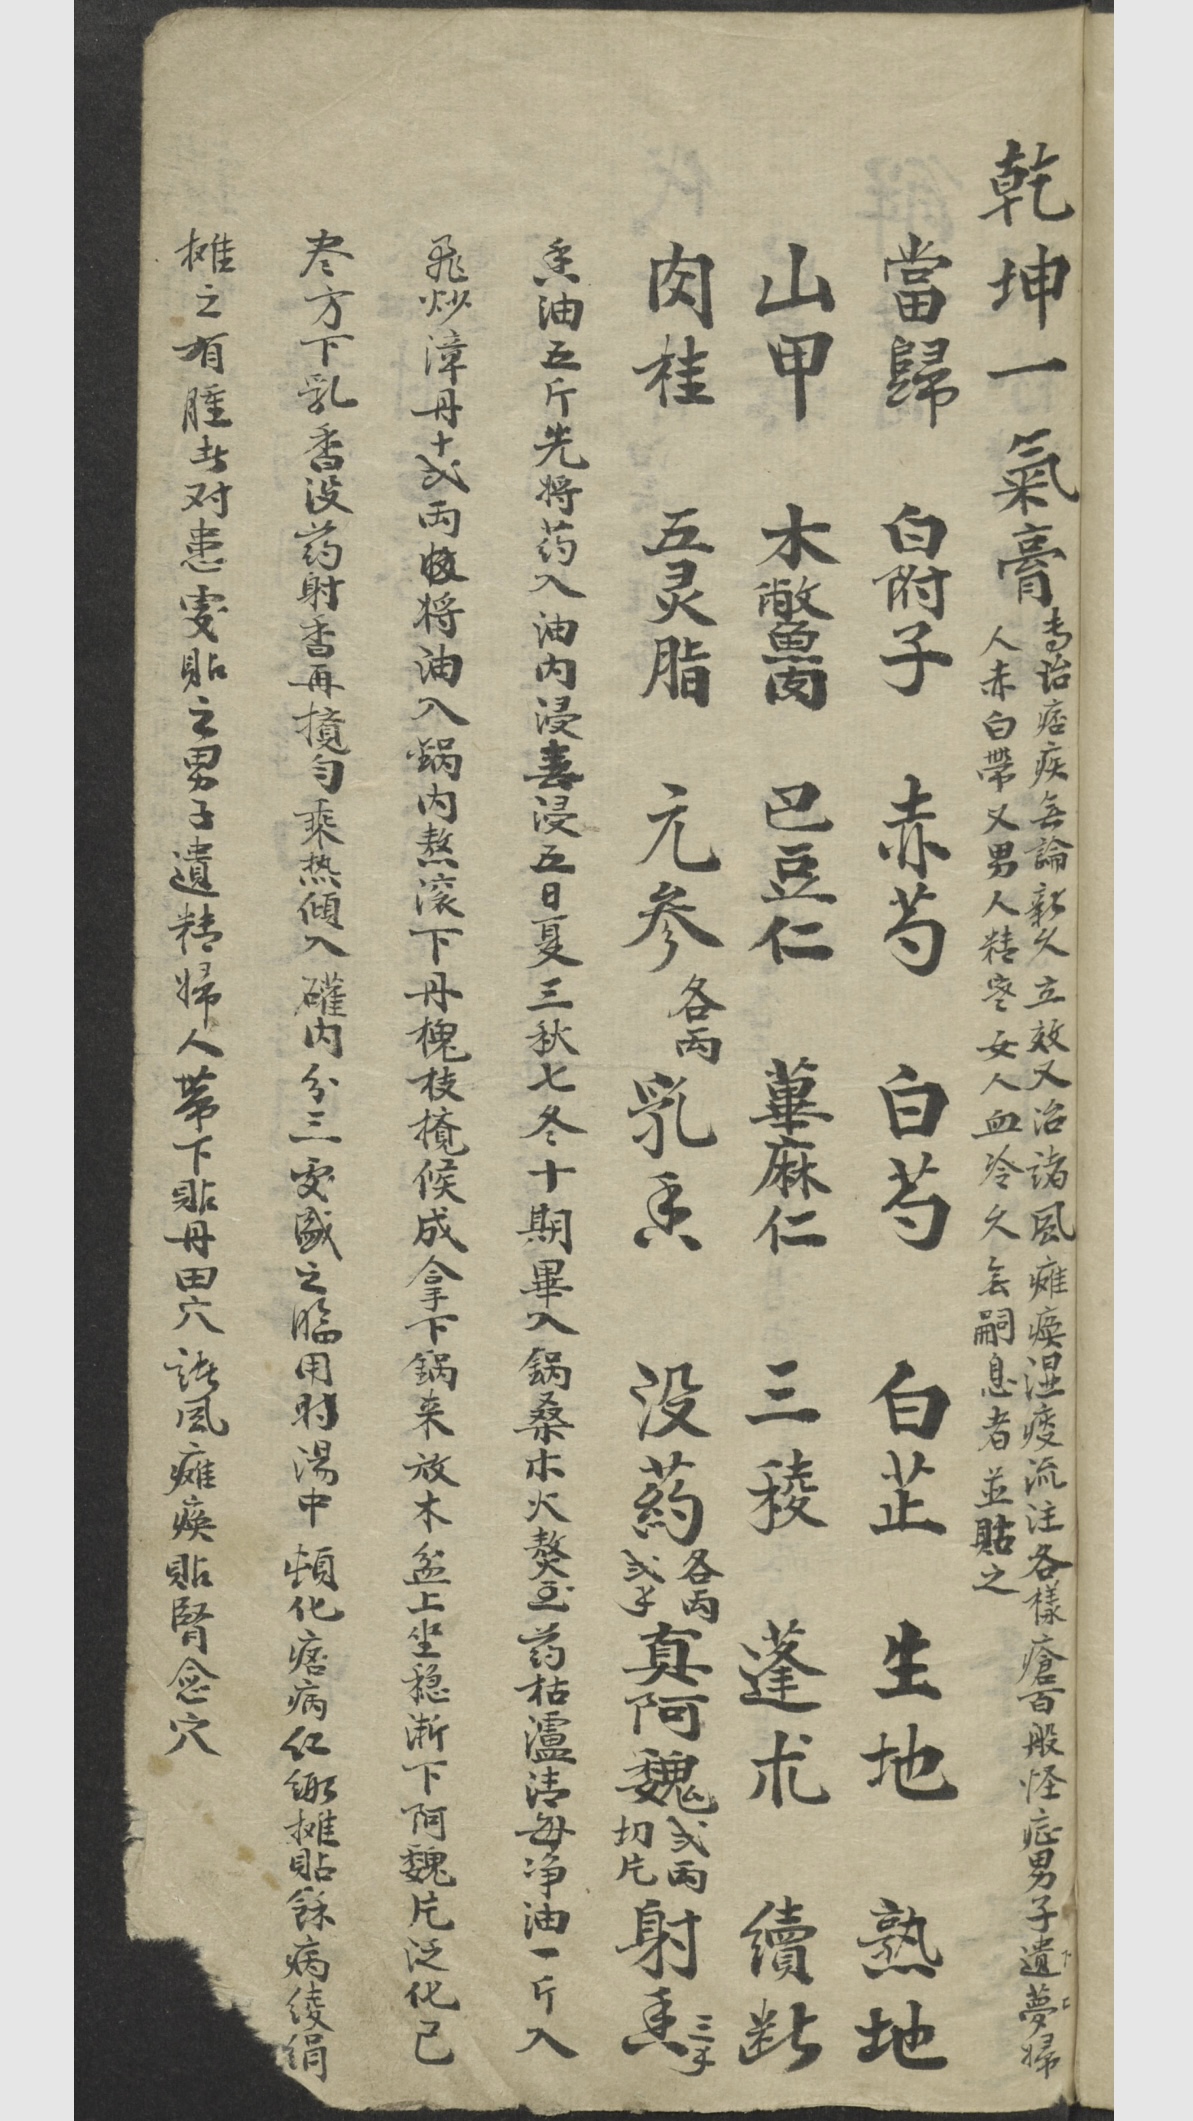 乾坤一氣膏
专治痞疾無論新久立效又治諸風癱瘓湿痰流注各樣瘡百般怪症男子遺夢婦
人赤白帶又男人精寒女人血冷久無嗣息者並貼之
當歸 白附子 赤芍 白芍 白芷 生地 熟地
山甲 木鱉肉 巴豆仁 蓖麻仁 三稜 蓬朮 續斷
肉桂 五灵脂 元参各両 乳香 没药各両弍钱 真阿魏弍両切片 射香三钱
香油五斤先将药入油内浸春浸五日夏三秋七冬十期畢入鍋桑木火熬至药枯濾清每净油一斤入
飛炒漳丹十弍両 将油入鍋内熬滚下丹槐枝搅候成拿下鍋来放木盆上坐稳漸下阿魏片泛化已
尽方下乳香没药射香再攪匀乘热傾入礶内分三处盛之臨用时湯中頓化痞病红緞摊貼餘病綾絹
摊之有腫者对患处貼之男子遺精婦人帶下貼丹田穴諸風癱瘓貼腎俞穴